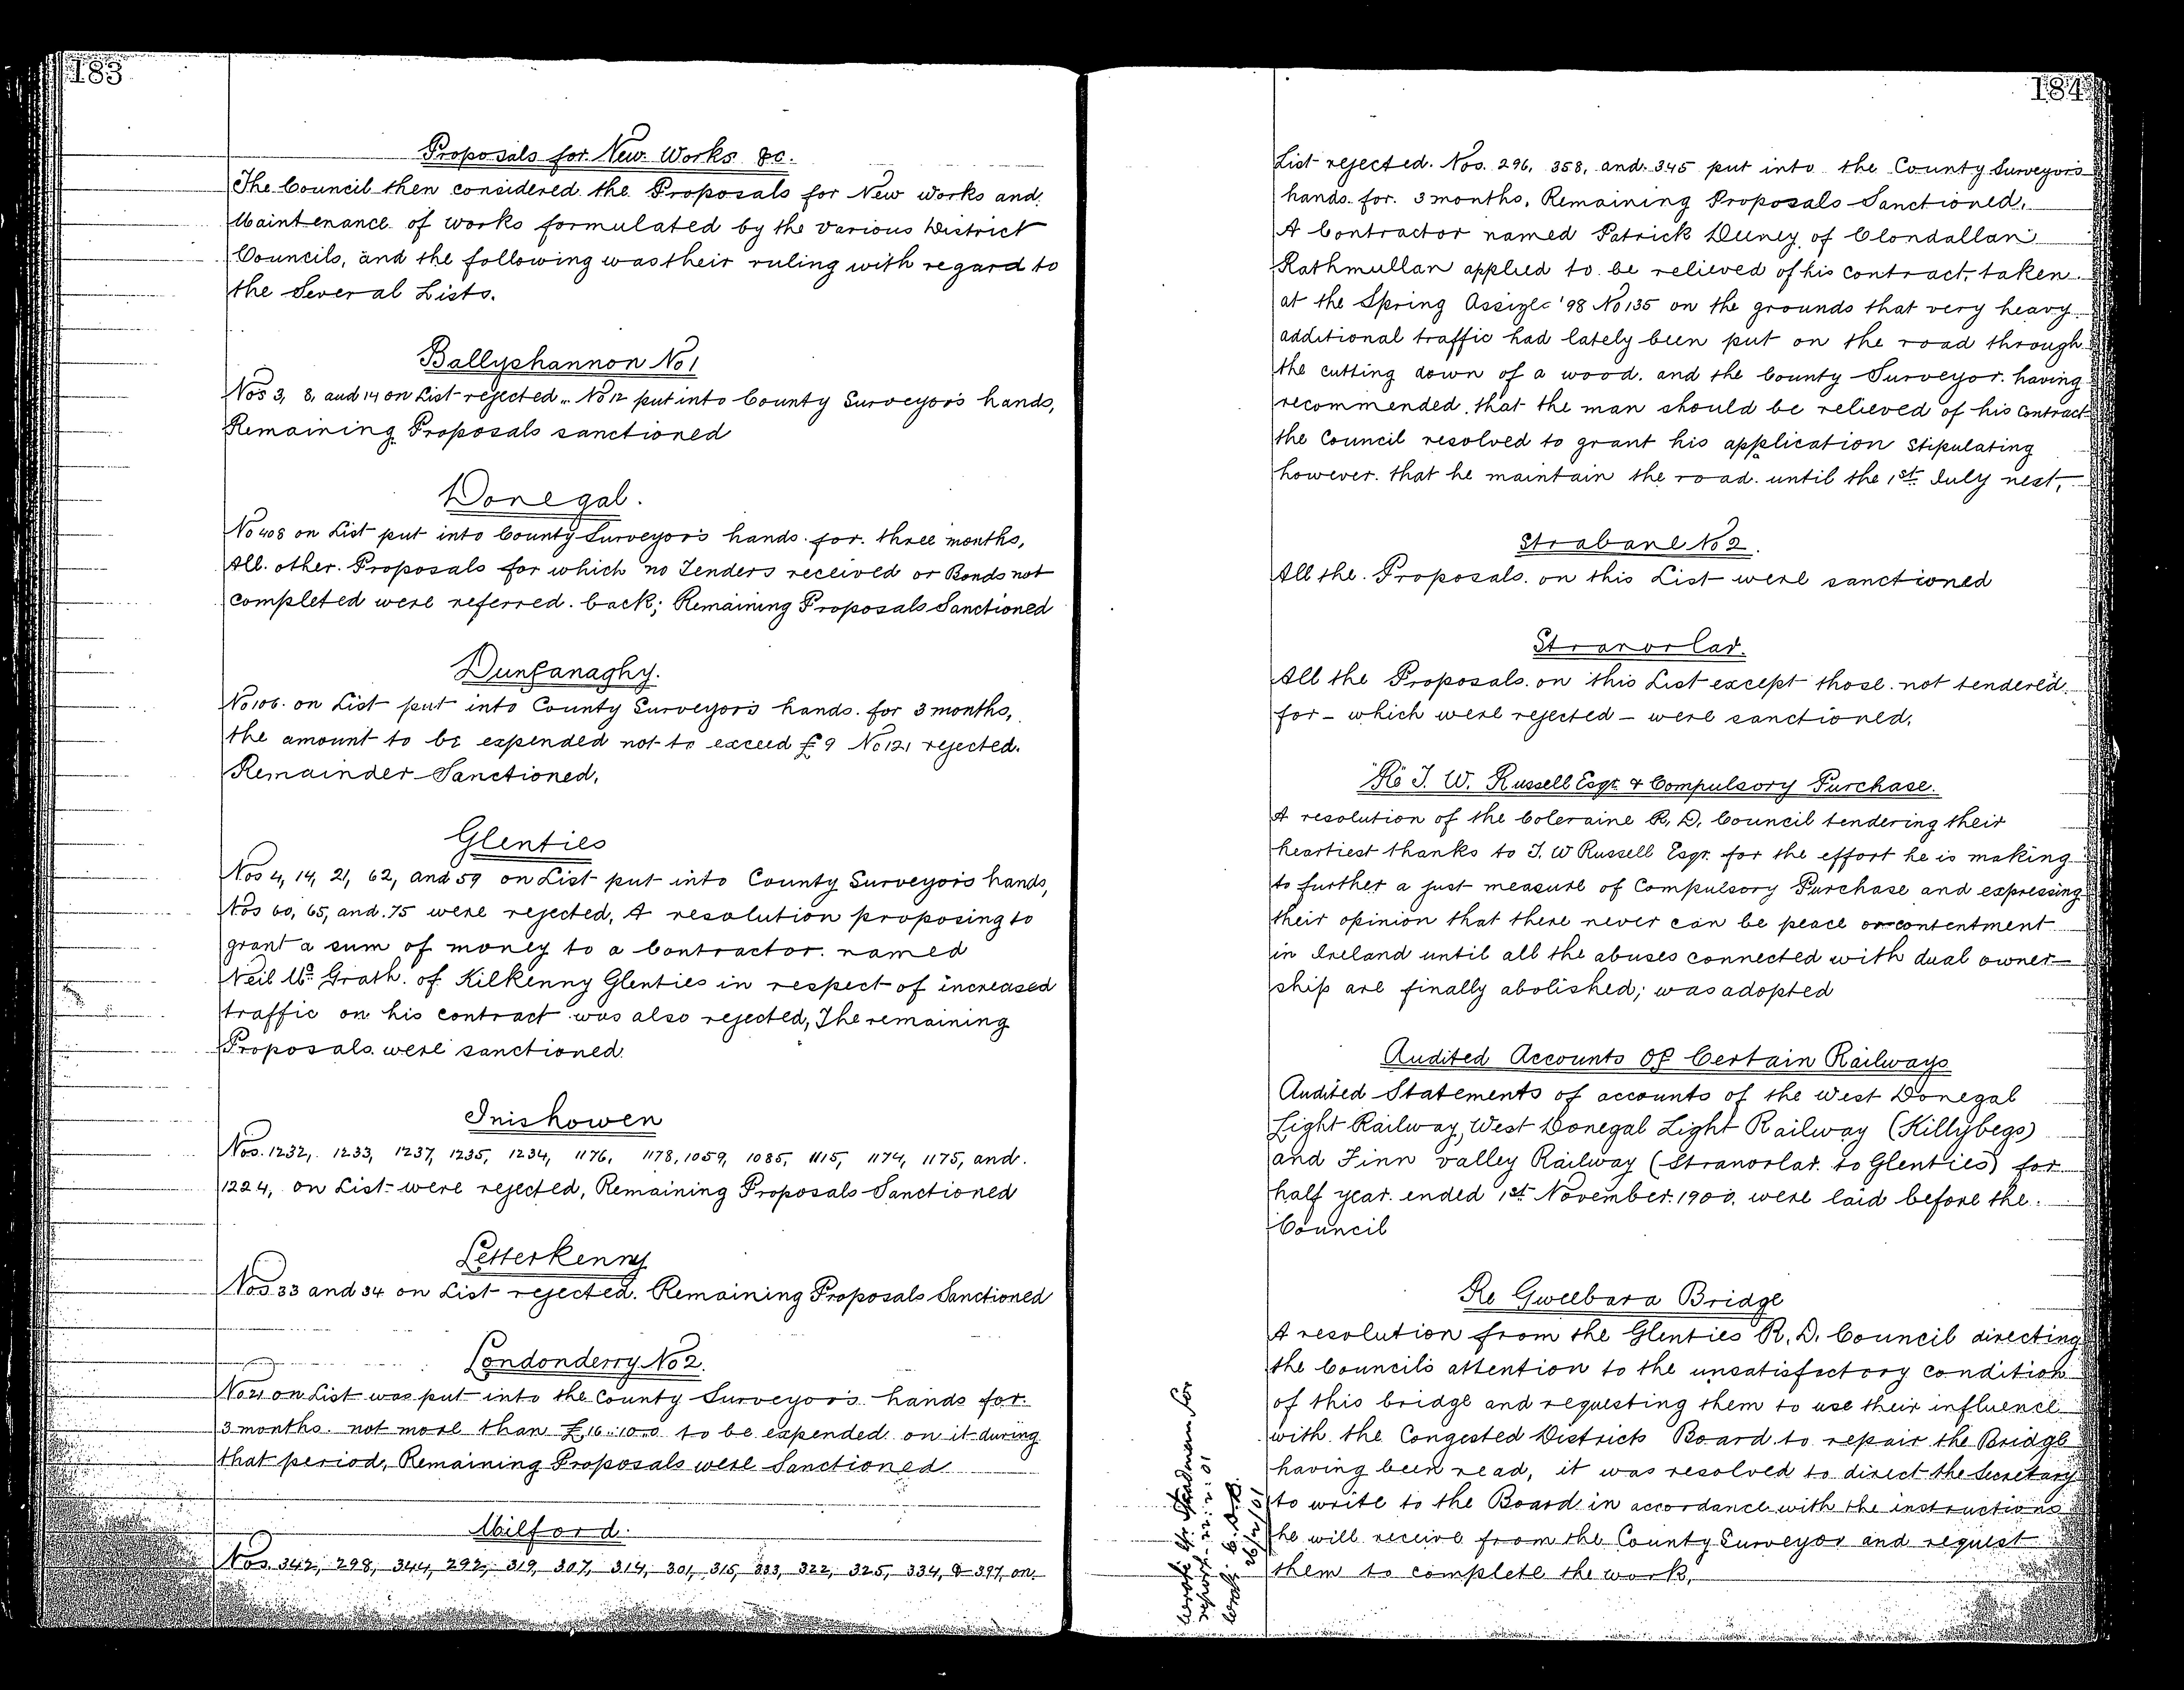 183
Proposals for New Works &c.
The Council then considered the Proposals for New Works and
Maintenance of works formulated by the various District
Councils, and the following was their ruling with regard to
the Several Lists.
Ballyshannon No 1
Nos 3, 8, and 14 on List rejected. No 12 put into County Surveyor's hands,
Remaining Proposals sanctioned
Donegal.
No 408 on List put into County Surveyor's hands for three months,
All other Proposals for which no Tenders received or Bonds not
completed were referred back; Remaining Proposals Sanctioned
Dunfanaghy.
No 106 on List put into County Surveyor's hands for 3 months,
the amount to be expended not to exceed £9 No 121 rejected.
Remainder Sanctioned.
Glenties
Nos 4, 14, 21, 62, and 59 on List put into County Surveyor's hands,
Nos 60, 65, and 75 were rejected, A resolution proposing to
grant a sum of money to a Contractor named
Neil Mc Grath of Kilkenny Glenties in respect of increased
traffic on his contract was also rejected, The remaining
Proposals were sanctioned.
Inishowen
Nos. 1232, 1233, 1237, 1235, 1234, 1176, 1178, 1059, 1085, 1115, 1174, 1175, and
1224, on List were rejected, Remaining Proposals Sanctioned
Letterkenny
Nos 33 and 34 on List rejected. Remaining Proposals Sanctioned
Londonderry No 2.
No 21 on List was put into the County Surveyor's hands for
3 months not more than £16..10..0 to be expended on it during
that period, Remaining Proposals were Sanctioned
Milford.
Nos. 342, 298, 344, 292, 319, 307, 314, 301, 315, 333, 322, 325, 334, & 397, on
184
List rejected. Nos. 296, 358, and 345 put into the County Surveyor's
hands for 3 months, Remaining Proposals Sanctioned.
A Contractor named Patrick Deeney of Clondallan
Rathmullan applied to be relieved of his contract, taken
at the Spring Assizes '98 No 135 on the grounds that very heavy
additional traffic had lately been put on the road through
the cutting down of a wood. and the County Surveyor having
recommended that the man should be relieved of his contract
the Council resolved to grant his application stipulating
however that he maintain the road until the 1st July next.
Strabane No 2.
All the Proposals on this List were sanctioned
Stranorlar.
All the Proposals on this List except those not tendered
for - which were rejected - were sanctioned.
Re T. W. Russell Esqr. & Compulsory Purchase.
A resolution of the Coleraine R. D. Council tendering their
heartiest thanks to T. W Russell Esqr. for the effort he is making
to further a just measure of Compulsory Purchase and expressing
their opinion that there never can be peace or contentment
in Ireland until all the abuses connected with dual owner-
ship are finally abolished; was adopted
Audited Accounts Of Certain Railways
Audited Statements of accounts of the West Donegal
Light Railway, West Donegal Light Railway (Killybegs)
and Finn Valley Railway (Stranorlar to Glenties) for
half year ended 1st November 1900 were laid before the
Council
Re Gweebara Bridge
A resolution from the Glenties R. D. Council directing
the Council's attention to the unsatisfactory condition
of this bridge and requesting them to use their influence
with the Congested Districts Board to repair the Bridge
having been read, it was resolved to direct the Secretary
to write to the Board in accordance with the instructions
he will receive from the County Surveyor and request
them to complete the work.
Wrote Mr. Steadman for
report 22.2.01
Wrote C. D. B.
26/2/01